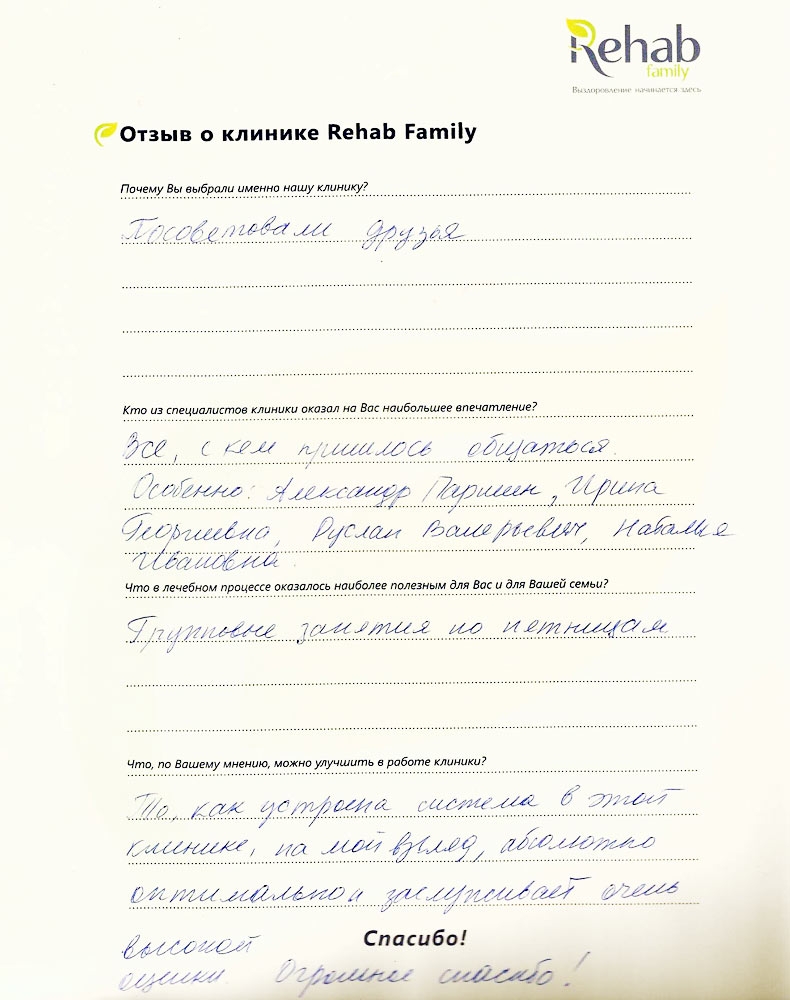 Rehab
family
Выздоровление начинается здесь
Отзыв о клинике Rehab Family
Почему Вы выбрали именно нашу клинику?
Посоветовали друзья
Кто из специалистов клиники оказал на Вас наибольшее впечатление?
Все, с кем пришлось общаться.
Особенно: Александр Паршин, Ирина
Георгиевна, Руслан Валерьевич, Наталья
Ивановна.
Что в лечебном процессе оказалось наиболее полезным для Вас и для Вашей семьи?
Групповые занятия по пятницам
Что, по Вашему мнению, можно улучшить в работе клиники?
То, как устроена система в этой
клинике, на мой взгляд, абсолютно
оптимально и заслуживает очень
высокой
Спасибо!
оценки. Огромное спасибо!